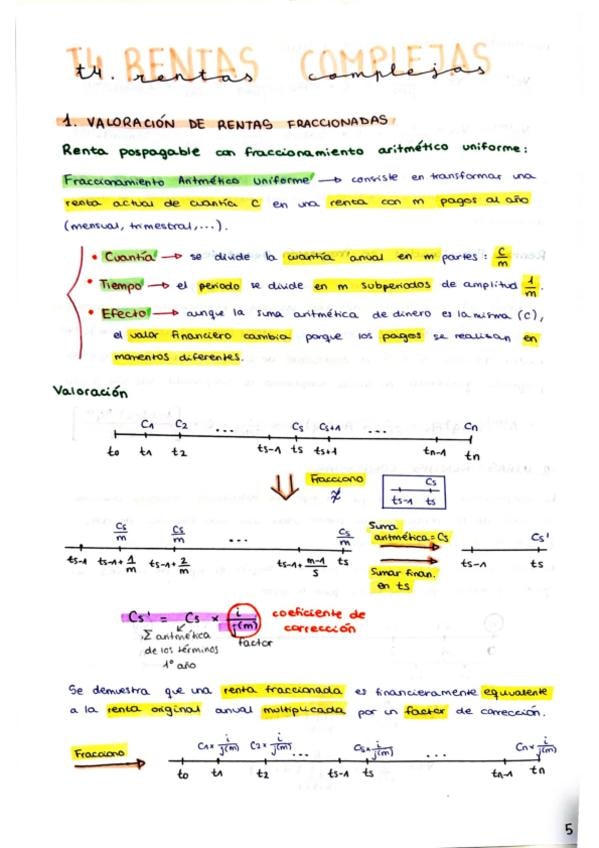 T4 RENTAS COMPLEJAS
t4. rentas complejas
1. VALORACIÓN DE RENTAS FRACCIONADAS
Renta pospagable con fraccionamiento aritmético uniforme:
Fraccionamiento Aritmético Uniforme → consiste en transformar una
renta actual de cuantía C en una renta con m pagos al año
(mensual, trimestral,...).
• Cuantía → se divide la cuantía anual en m partes: C/m
• Tiempo → el periodo se divide en m subperiodos de amplitud 1/m.
• Efecto → aunque la suma aritmética de dinero es la misma (C),
el valor financiero cambia porque los pagos se realizan en
momentos diferentes.
Valoración
C1 C2 ... Cs Cs+1 ... Cn
t0 t1 t2 ts-1 ts ts+1 tn-1 tn
⇓ Fracciono
Cs
ts-1 ts
Cs/m Cs/m ... Cs/m
ts-1 ts-1+1/m ts-1+2/m ts-1+(m-1)/s ts
Suma
aritmética = Cs
Sumar finan.
en ts
Cs'
ts-1 ts
Cs' = Cs × i/j(m) coeficiente de
corrección
Σ aritmética factor
de los términos
1º año
Se demuestra que una renta fraccionada es financieramente equivalente
a la renta original anual multiplicada por un factor de corrección.
Fracciono →
C1× i/j(m) C2× i/j(m) ... Cs× i/j(m) ... Cn× i/j(m)
t0 t1 t2 ts-1 ts tn-1 tn
5